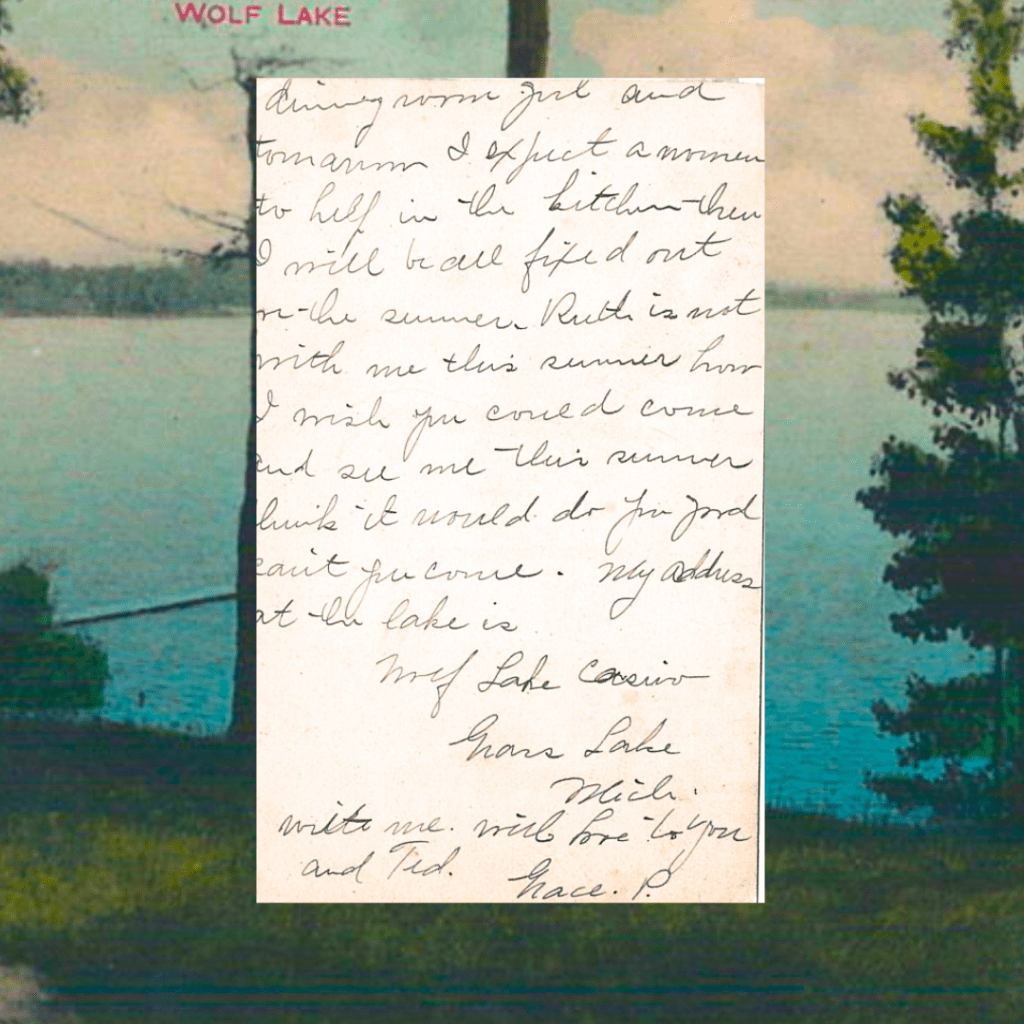 WOLF LAKE
dinning room girl and
tomarrow I expect a women
to help in the kitchen then
I will be all fixed out
for the summer. Ruth is not
with me this summer how
I wish you could come
and see me this summer
think it would do you good
can't you come. My address
at the lake is
Wolf Lake Casino
Grass Lake
Mich.
write me. with love to you
and Ted. Grace. P.